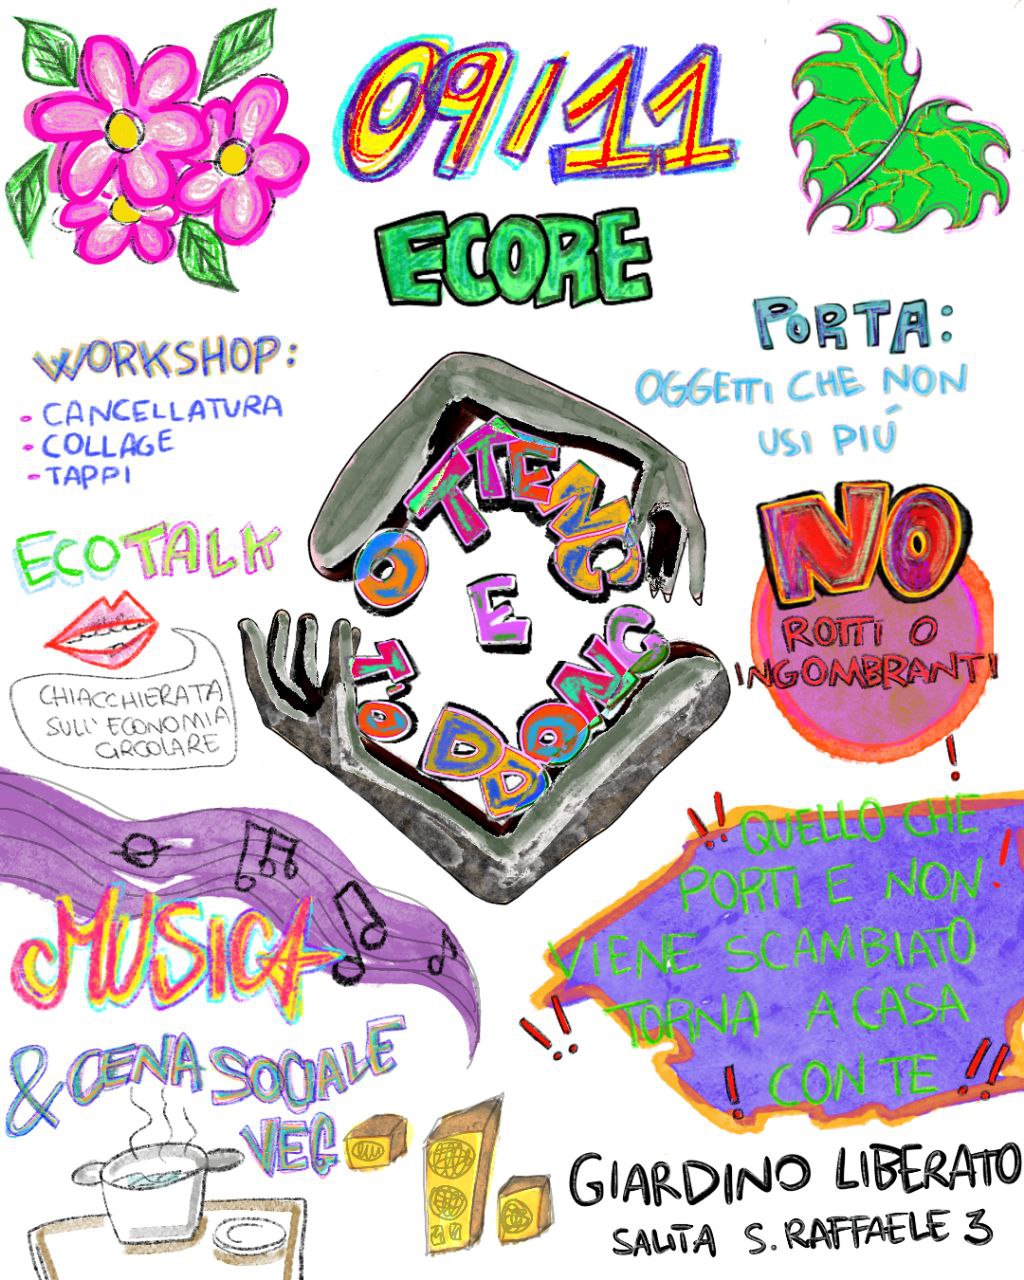 09/11
ECORE
WORKSHOP:
- CANCELLATURA
- COLLAGE
- TAPPI
ECOTALK
CHIACCHIERATA
SULL'ECONOMIA
CIRCOLARE
O TTENG
E
T'O DDONG
PORTA:
OGGETTI CHE NON
USI PIÚ
NO
ROTTI O
INGOMBRANTI
!
!! QUELLO CHE
PORTI E NON !
VIENE SCAMBIATO
!! TORNA A CASA
! CON TE !!
MUSICA
& CENA SOCIALE
VEG
GIARDINO LIBERATO
SALITA S. RAFFAELE 3